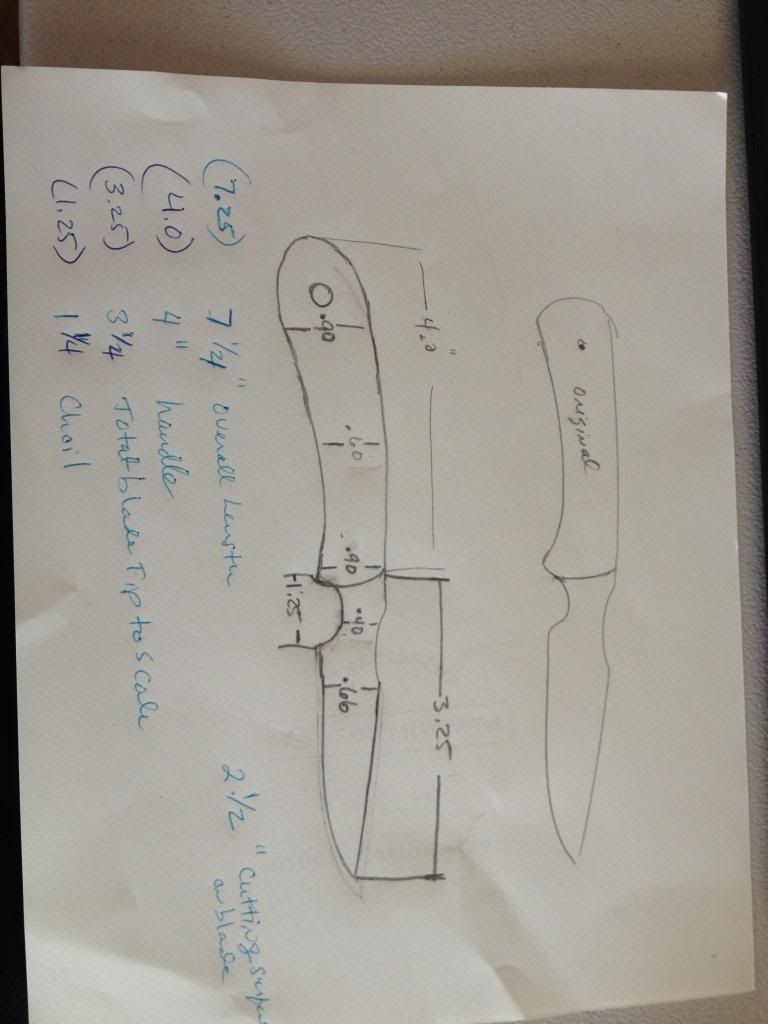 original
4.0"
3.25
.90
.60
.90
.40
.66
1.25
(7.25) 7 1/4" overall Length
2 1/2" Cutting
on blade
(4.0) 4" handle
(3.25) 3 1/4 Total blade Tip to scale
(1.25) 1 1/4 Choil